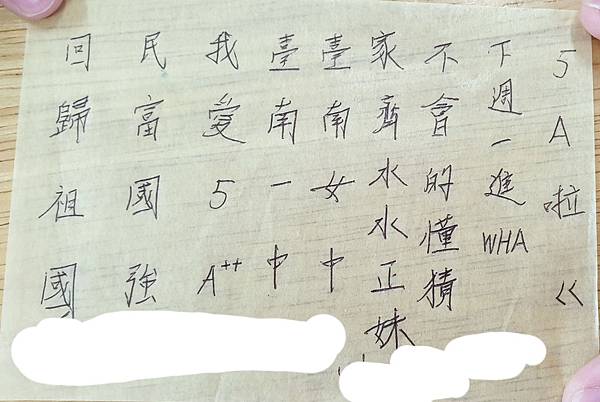 5A啦ㄍ
下週一進WHA
不會的懂猜
家齊水水正妹
臺南女中
臺南一中
我愛5A++
民富國強
回歸祖國